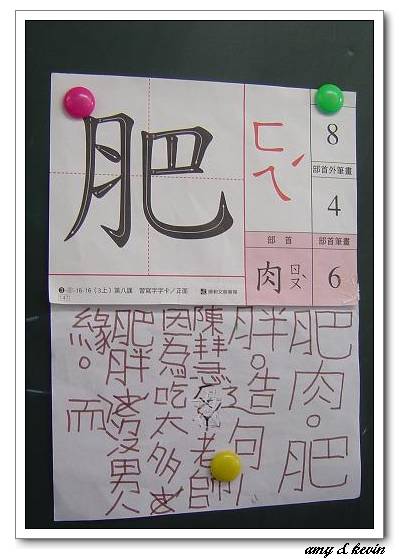 肥
ㄈㄟˊ
8
部首外筆畫
4
部首
部首筆畫
肉 ㄖㄡˋ
6
16-16（3上）第八課 習寫字字卡／正面
肥肉。肥
胖。造句
陳慧 老師
因為吃太多
肥胖 沒男人
緣。而
amy & kevin